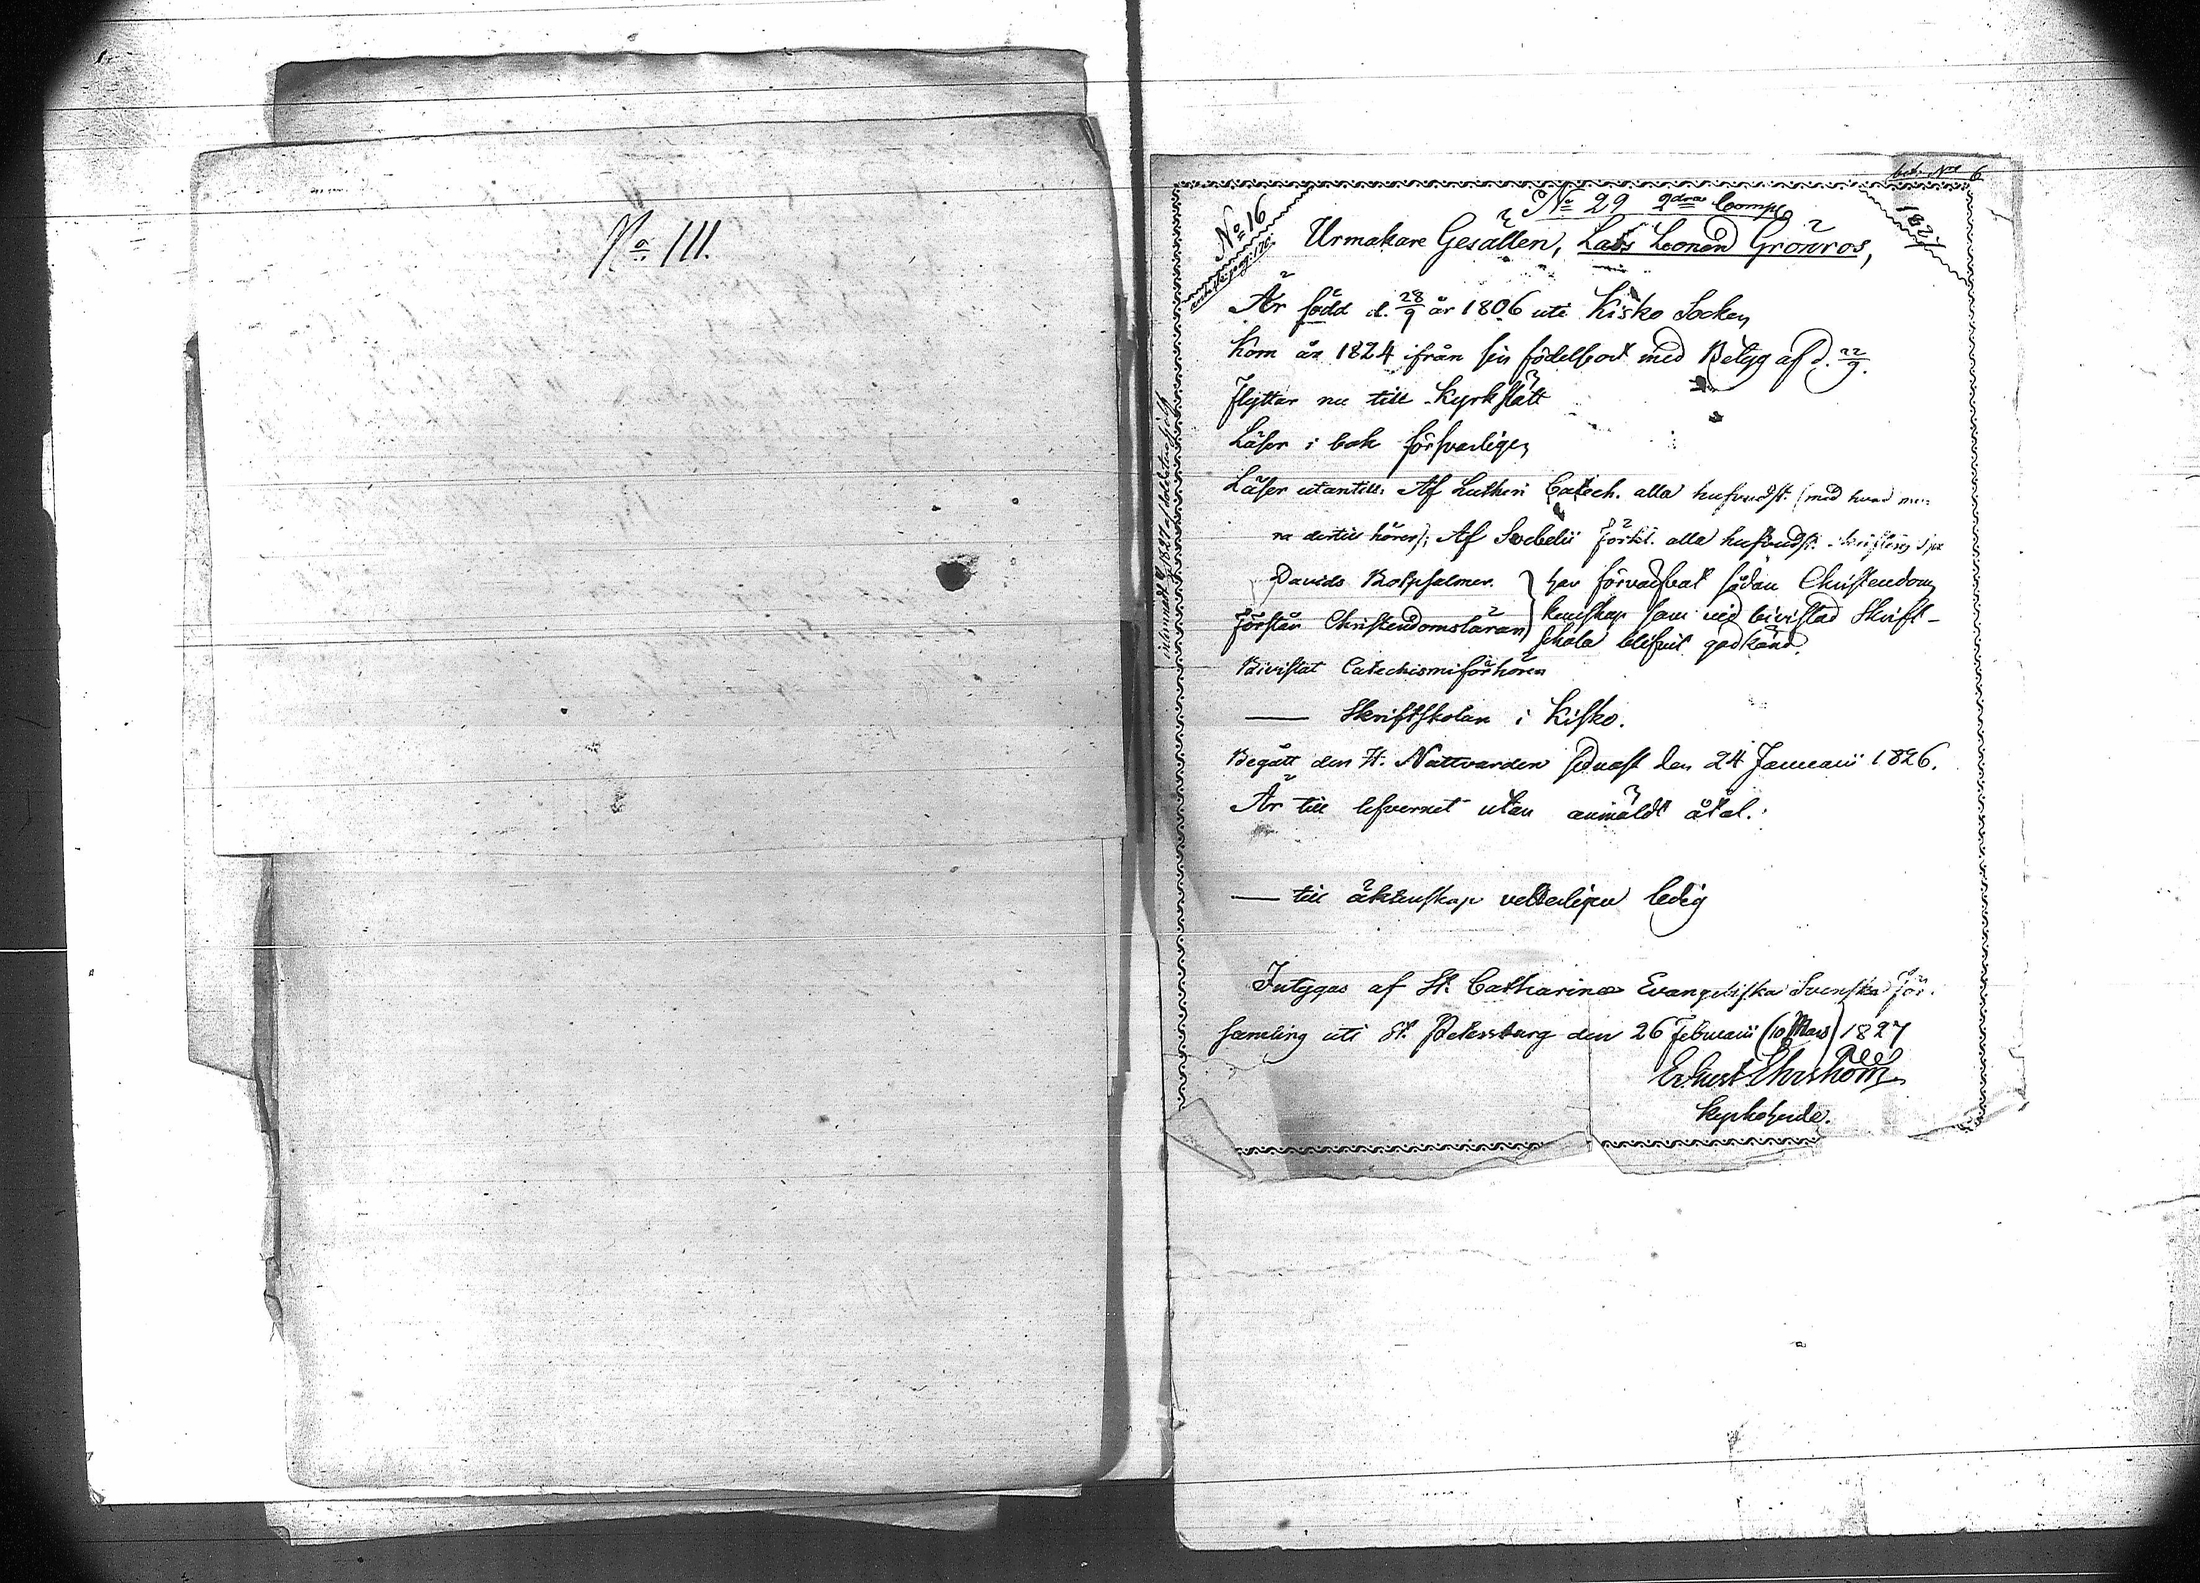 No 111.
bet. No 6
No 16
1827
No 29 2dra Comp.
Urmakare Gesällen, Lars Leonard Grönros,
Är född d. 28/9 år 1806 uti Kisko Socken
Kom år 1824 ifrån sin födelseort med Betyg af d. 22/9.
Flyttar nu till Kyrkslätt
Läser i bok försvarligen
Läser utantill: Af Lutheri Catech. alla hufvudst. (med hvad me-
ra dertill hörer); Af Svebelii Förkl. alla hufvudst.
Davids Botpsalmer. har förvärfvat sådan Christendoms
Förstår Christendomsläran kunskap som vid bivistad Skrift-
skola blifvit godkänd.
Bivistat Catechismiförhören
— Skriftskolan i Kisko.
Begått den H. Nattvarden sednast den 24 Januarii 1826.
Är till lefvernet utan anmäldt åtal.
— till äktenskap vetterligen ledig
Intygas af St. Catharinæ Evangeliska Svenska För-
samling uti St. Petersburg den 26 Februarii (10 Mars) 1827
Ernst Ehrström
Kyrkoherde.